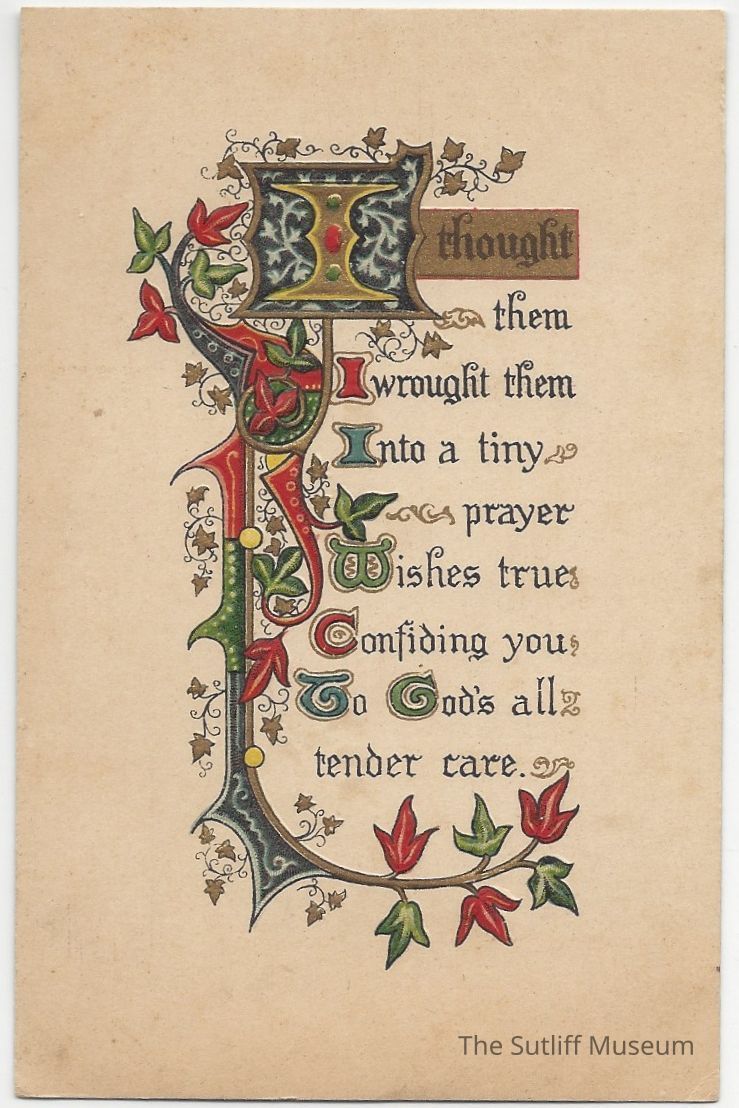 I thought
them
I wrought them
Into a tiny
prayer
Wishes true
Confiding you
To God's all
tender care.
The Sutliff Museum